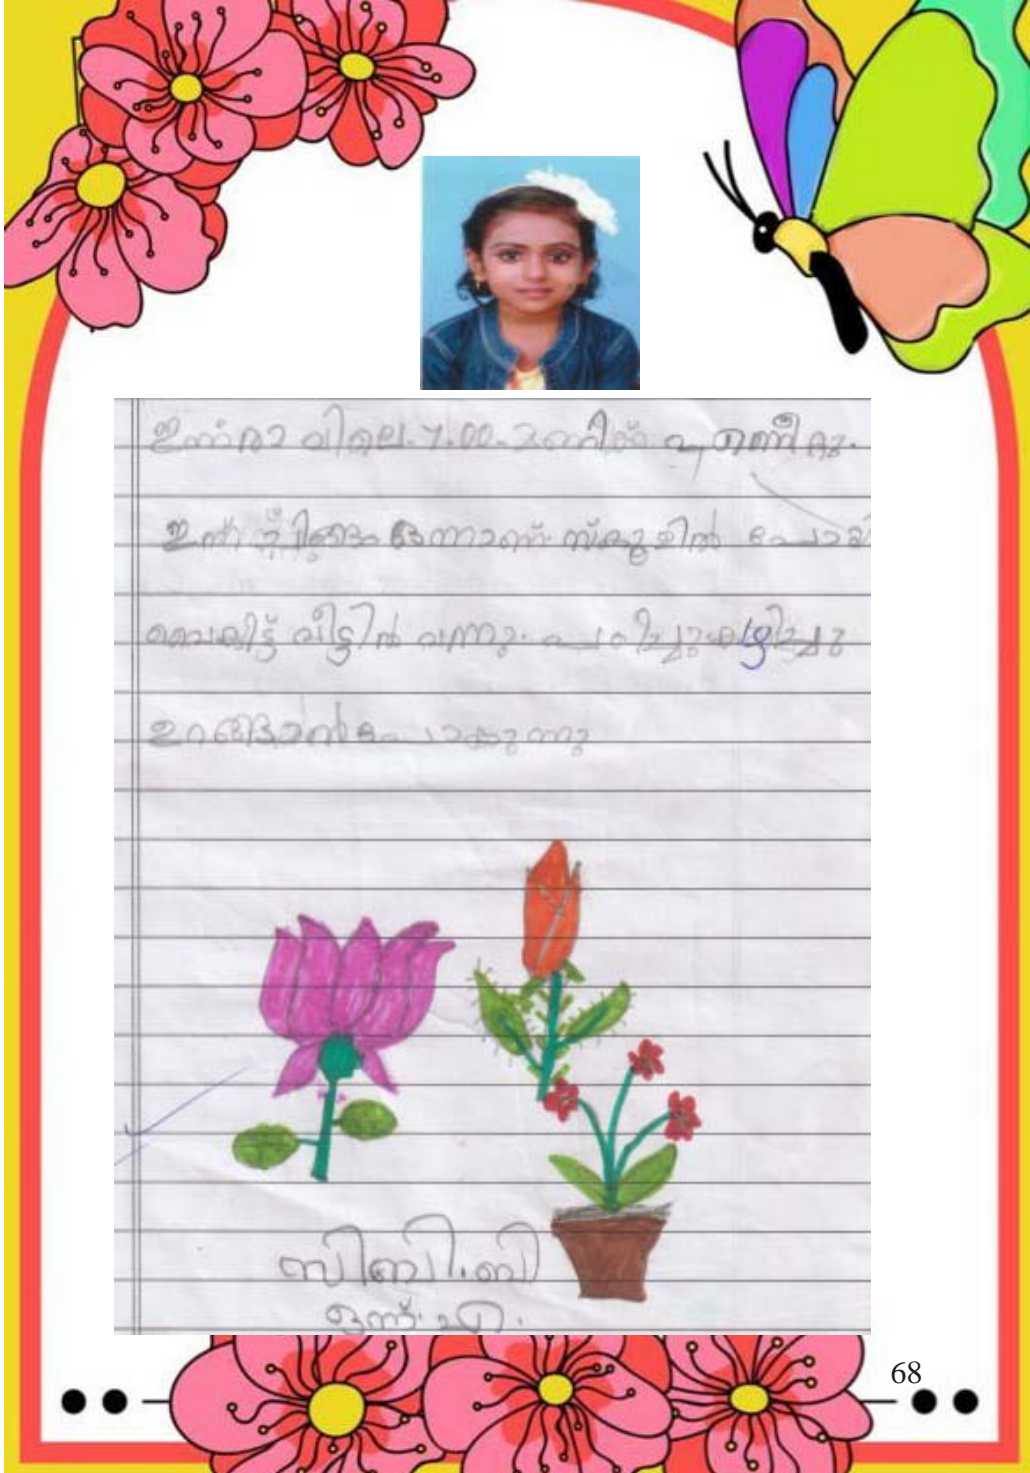 ഇന്ന് രാവിലെ 7.00 മണിക്ക് എണീറ്റു.
ഇന്ന് ചിങ്ങം ഒന്നാണ് സ്കൂളിൽ പോയി
വൈകിട്ട് വീട്ടിൽ വന്നു പഠിച്ചു കഴിച്ചു
ഉറങ്ങാൻ പോകുന്നു
സിബി.ബി
ഒന്ന്. എ.
68